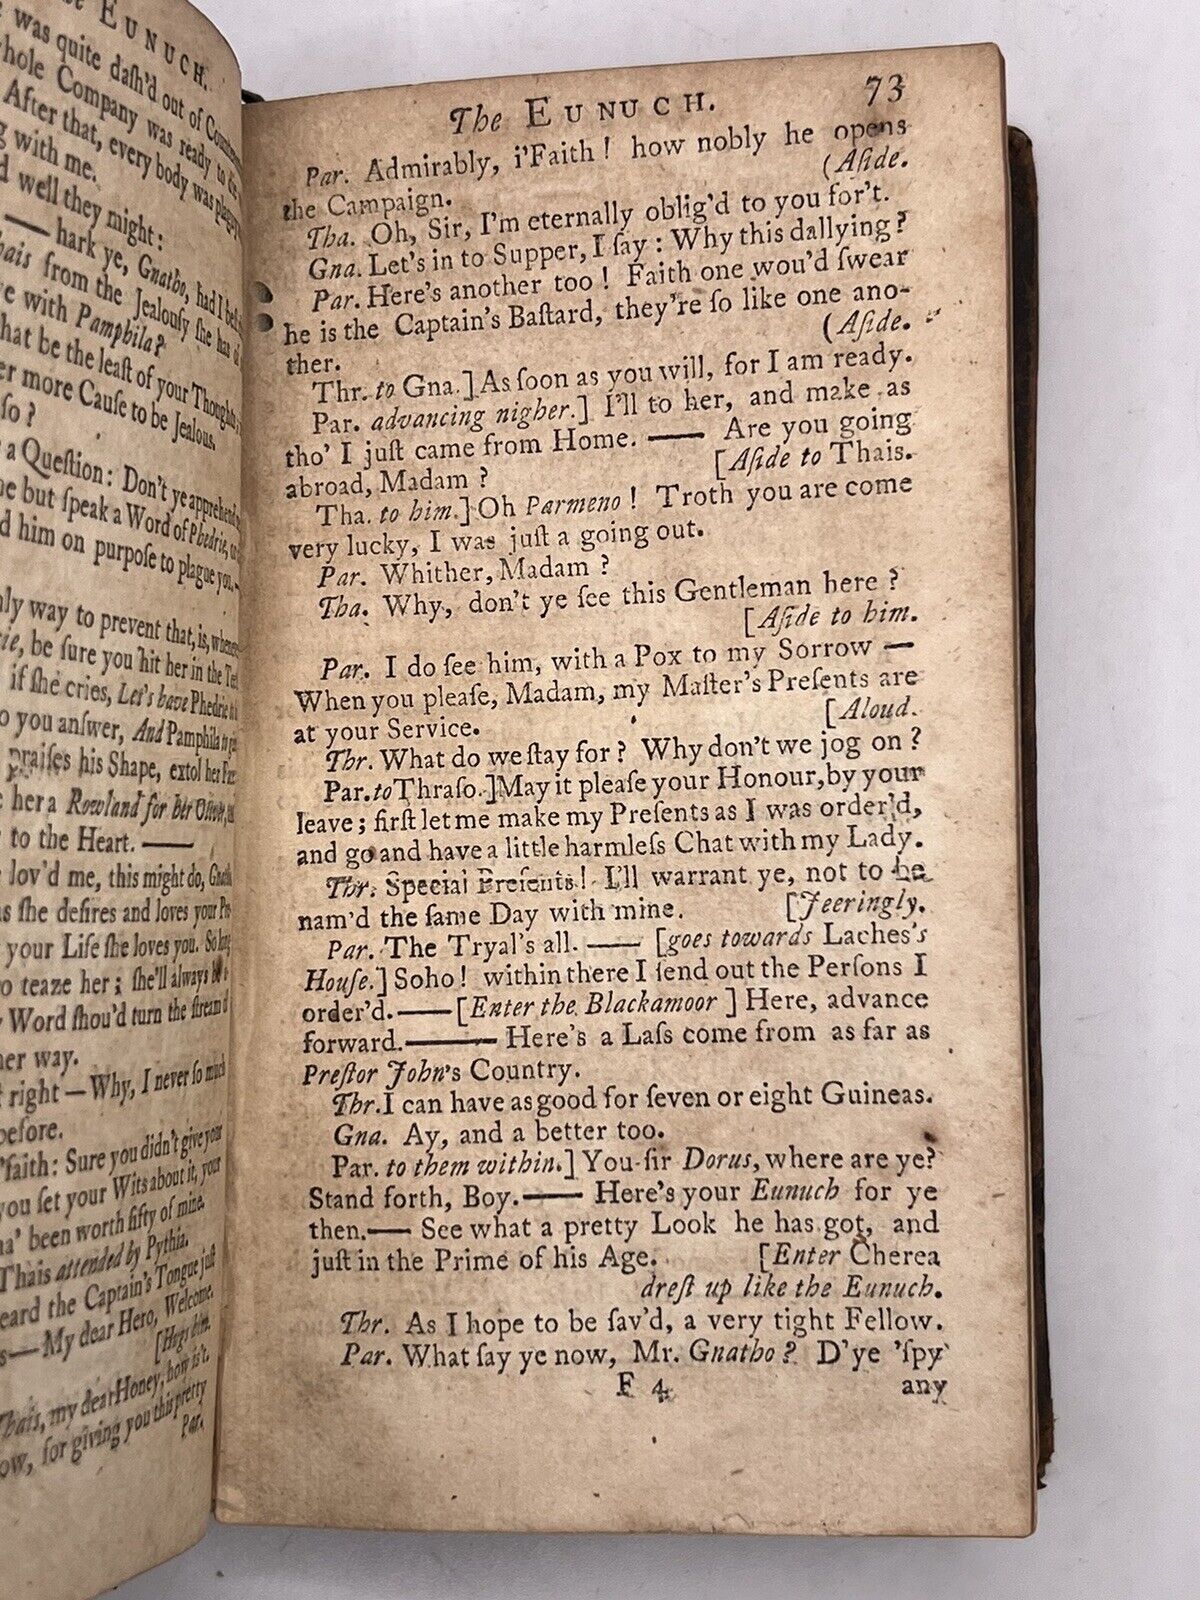 The EUNUCH.
e was quite daſh'd out of
whole Company was ready to
After that, every body was
g with me.
d well they might:
— hark ye, Gnatho, had I beſt
hais from the Jealouſy ſhe has of
e with Pamphila?
hat be the leaſt of your Thoughts,
er more Cauſe to be Jealous.
ſo?
a Queſtion: Don't ye apprehend
e but ſpeak a Word of Phedrie,
d him on purpoſe to plague you.
nly way to prevent that, is, whene
ie, be ſure you hit her in the Teet
if ſhe cries, Let's have Phedrie
o you anſwer, And Pamphila to
praiſes his Shape, extol her Face
her a Rowland for her Oliver,
to the Heart. —
lov'd me, this might do, Gnatho
as ſhe deſires and loves your Pre
your Life ſhe loves you. So long
o teaze her; ſhe'll always be
y Word ſhou'd turn the ſtream
her way.
t right — Why, I never ſo much
before.
'faith: Sure you didn't give your
you ſet your Wits about it, your
ha' been worth fifty of mine.
Thais attended by Pythia.
eard the Captain's Tongue juſt
s—My dear Hero, Welcome.
[Hugs him.
Thais, my dear Honey, how is't.
ow, for giving you this pretty
Par.
The EUNUCH. 73
Par. Admirably, i'Faith! how nobly he opens
the Campaign. (Aſide.
Tha. Oh, Sir, I'm eternally oblig'd to you for't.
Gna. Let's in to Supper, I ſay: Why this dallying?
Par. Here's another too! Faith one wou'd ſwear
he is the Captain's Baſtard, they're ſo like one ano-
ther. (Aſide.
Thr. to Gna.] As ſoon as you will, for I am ready.
Par. advancing nigher.] I'll to her, and make as
tho' I juſt came from Home. — Are you going
abroad, Madam? [Aſide to Thais.
Tha. to him.] Oh Parmeno! Troth you are come
very lucky, I was juſt a going out.
Par. Whither, Madam?
Tha. Why, don't ye ſee this Gentleman here?
[Aſide to him.
Par. I do ſee him, with a Pox to my Sorrow —
When you pleaſe, Madam, my Maſter's Preſents are
at your Service. [Aloud.
Thr. What do we ſtay for? Why don't we jog on?
Par. to Thraſo.] May it pleaſe your Honour, by your
leave; firſt let me make my Preſents as I was order'd,
and go and have a little harmleſs Chat with my Lady.
Thr. Special Preſents! I'll warrant ye, not to be
nam'd the ſame Day with mine. [Jeeringly.
Par. The Tryal's all. — [goes towards Laches's
Houſe.] Soho! within there I ſend out the Perſons I
order'd. — [Enter the Blackamoor] Here, advance
forward. — Here's a Laſs come from as far as
Preſtor John's Country.
Thr. I can have as good for ſeven or eight Guineas.
Gna. Ay, and a better too.
Par. to them within.] You ſir Dorus, where are ye?
Stand forth, Boy. — Here's your Eunuch for ye
then. — See what a pretty Look he has got, and
juſt in the Prime of his Age. [Enter Cherea
dreſt up like the Eunuch.
Thr. As I hope to be ſav'd, a very tight Fellow.
Par. What ſay ye now, Mr. Gnatho? D'ye 'ſpy
F 4 any